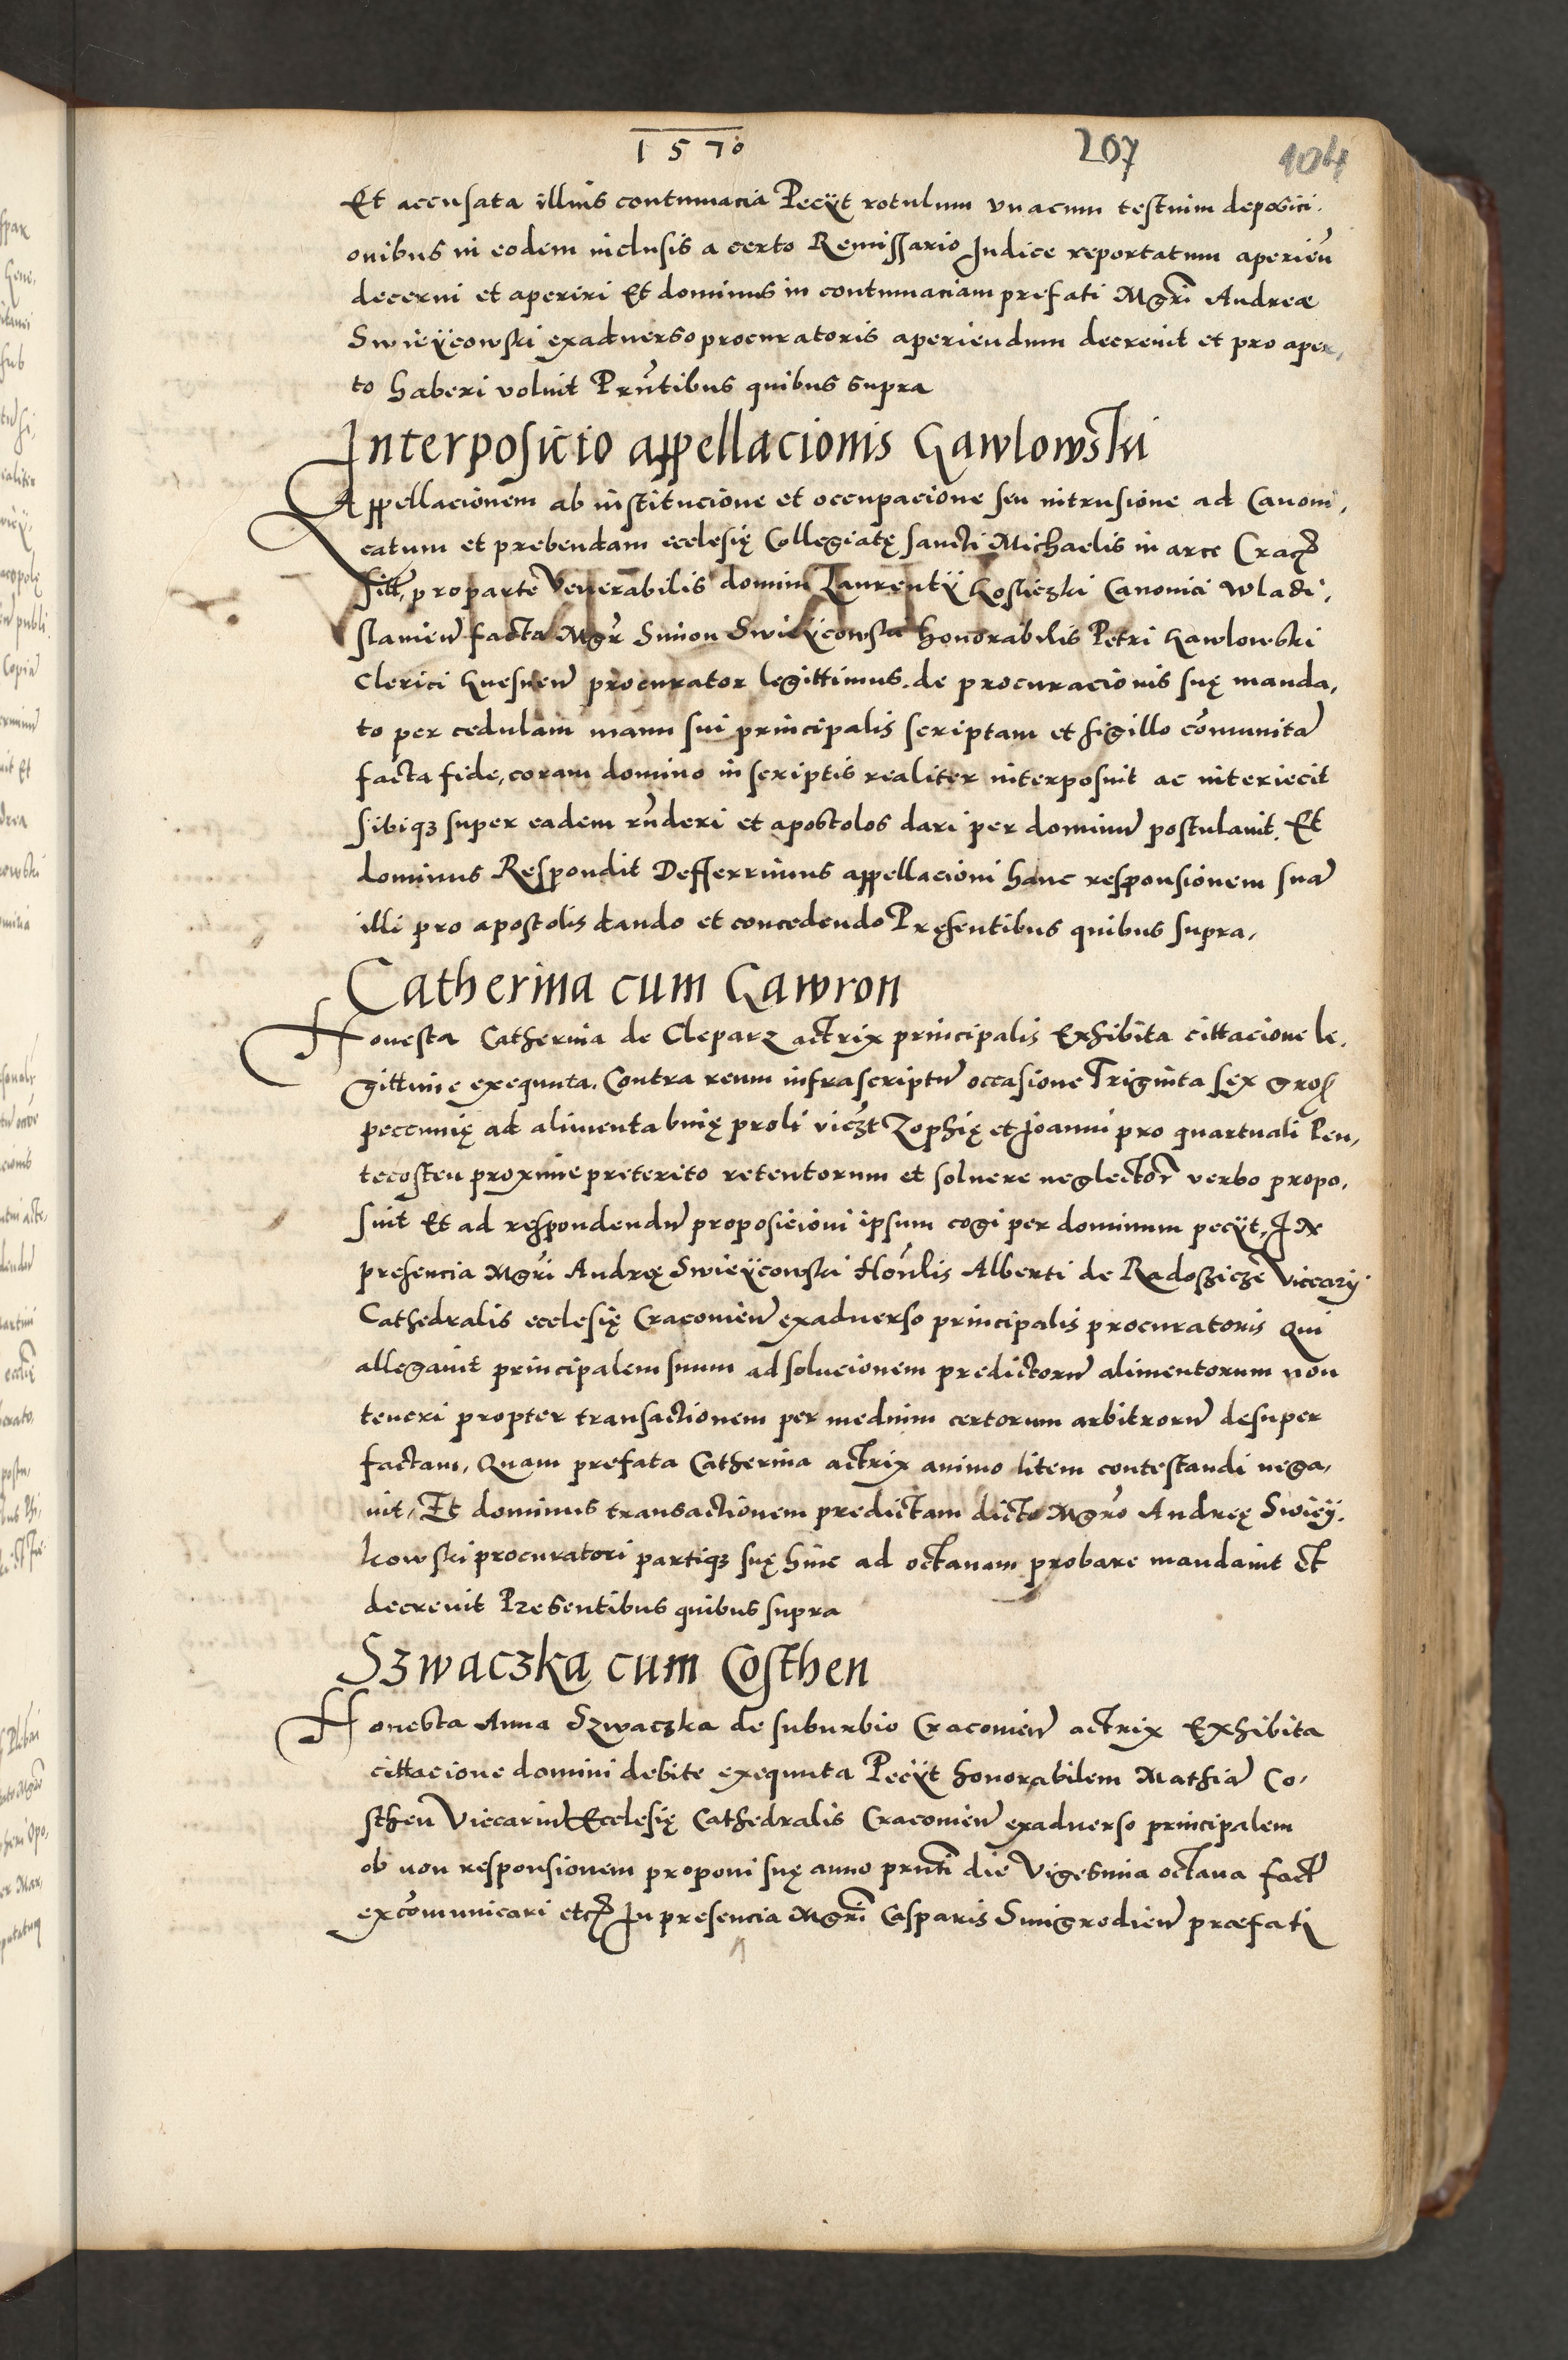 1570 207 104
Et accusata illius contumacia Pecijt rotulum vnacum testium deposici-
onibus in eodem inclusis a certo Remissario Judice reportatum aperień
decerni et aperiri Et dominus in contumaciam prefati Mgri Andreæ
Swieÿcowski exaduerso procuratoris aperiendum decreuit et pro aper-
to haberi voluit Prñtibus quibus supra
Interposicio appellacionis Gawlowski
Appellacionem ab institucione et occupacione seu intrusione ad Canoni-
catum et prebendam ecclesię Collegiatę sancti Michaelis in arce Crac
sitt, pro parte Venerabilis domini Laurentÿ Goslieski Canonici Wladi-
slauień facta Mgr Simon Swieÿcowski honorabilis Petri Gawlowski
Clerici Gnesneń procurator legittimus de procuracionis suę manda-
to per cedulam manu sui principalis scriptam et sigillo cõmunitã
facta fide, coram domino in scriptis realiter interposuit ac interiecit
sibiqȝ super eadem rñderi et apostolos dari per dominũ postulauit. Et
dominus Respondit Defferrimus appellacioni hanc responsionem suã
illi pro apostolis dando et concedendo Pręsentibus quibus supra.
Catherina cum Gawron
Honesta Catherina de Cleparz actrix principalis Exhibita cittacione le-
gittime exequuta. Contra reum infrascriptũ occasione Triginta sex gros
peccunię ad alimenta binię proli viczt Zophię et Joanni pro quartuali Pen-
tecosten proxime preterito retentorum et soluere neglector verbo propo-
suit Et ad respondendũ proposicioni ipsum cogi per dominum pecÿt, In
presencia Mgri Andreę Swieÿcowski Honlis Alberti de Radoszicze Viccarÿ
Cathedralis ecclesię Cracouień exaduerso principalis procuratoris Qui
allegauit principalem suum ad solucionem predictorũ alimentorum non
teneri propter transactionem per medium certorum arbitrorũ desuper
factam, Quam prefata Catherina actrix animo litem contestandi nega-
uit, Et dominus transactionem predictam dicto Mgro Andreę Swieÿ-
kowski procuratori partiqȝ suę hinc ad octauam probare mandauit et
decreuit Presentibus quibus supra
Szwaczka cum Costhen
Honesta Anna Szwaczka de suburbio Cracouień actrix Exhibita
cittacione domini debite exequuta Pecÿt honorabilem Mathiã Co-
sthen Viccariũ Ecclesię Cathedralis Cracouień exaduerso principalem
ob non responsionem proponi suę anno prnti die Vigesima octaua fact
excõmunicari etc In presencia Mgri Casparis Smigrodień præfati